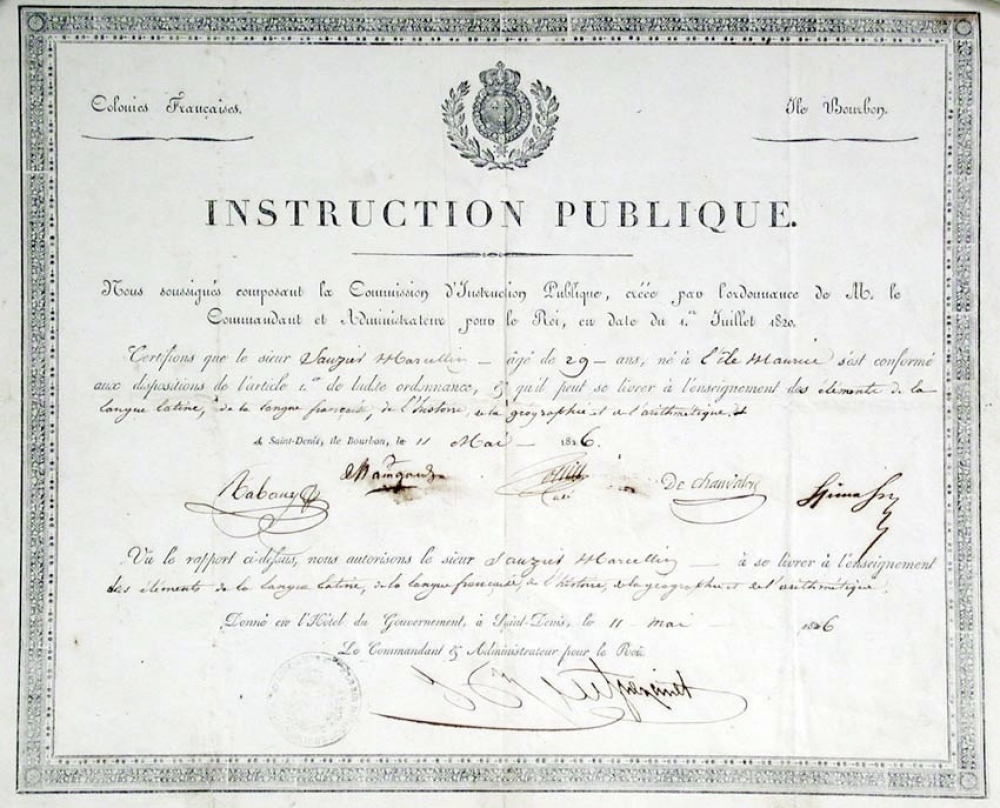 Colonies Françaises.
Ile Bourbon.
INSTRUCTION PUBLIQUE.
Nous soussignés composant la Commission d'Instruction Publique, créée par l'ordonnance de M. le
Commandant et Administrateur pour le Roi, en date du 1.er Juillet 1820.
Certifions que le sieur Sauzier Marcellin — âgé de 29 — ans, né à l'Ile Maurice s'est conformé
aux dispositions de l'article 1.er de ladite ordonnance, & qu'il peut se livrer à l'enseignement des éléments de la
langue latine, de la langue française, de l'histoire, de la géographie et de l'arithmétique.
A Saint-Denis, île Bourbon, le 11 Mai — 1826.
Rabany
De Chanvalon
Vu le rapport ci-dessus, nous autorisons le sieur Sauzier Marcellin — à se livrer à l'enseignement
des éléments de la langue latine, de la langue française, de l'histoire, de la géographie et de l'arithmétique.
Donné en l'Hôtel du Gouvernement, à Saint-Denis, le 11 mai — 1826
Le Commandant & Administrateur pour le Roi.